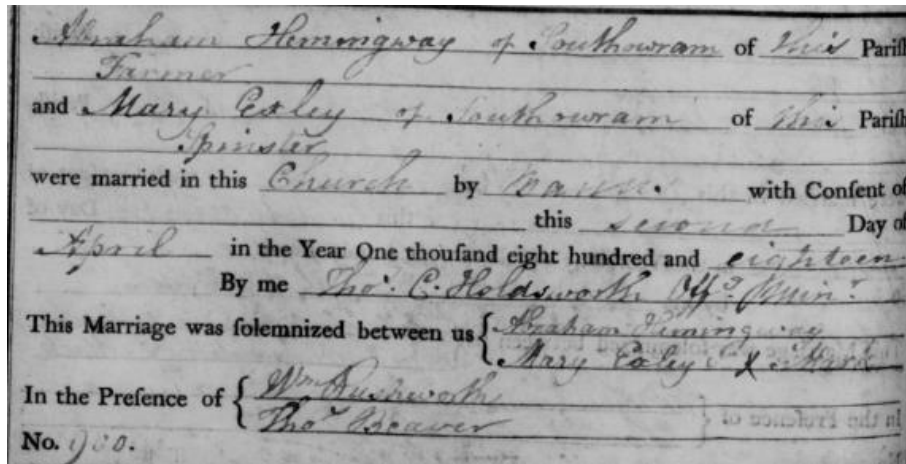 Abraham Hemingway of Southowram of this Pariſh
Farmer
and Mary Exley of Southowram of this Pariſh
Spinster
were married in this Church by Banns. with Conſent of
this second Day of
April in the Year One thouſand eight hundred and eighteen
By me Thos. C. Holdsworth Offg. Minr.
This Marriage was ſolemnized between us { Abraham Hemingway
Mary Exley X Mark
In the Preſence of { Wm Rushworth
Thos Beaver
No.